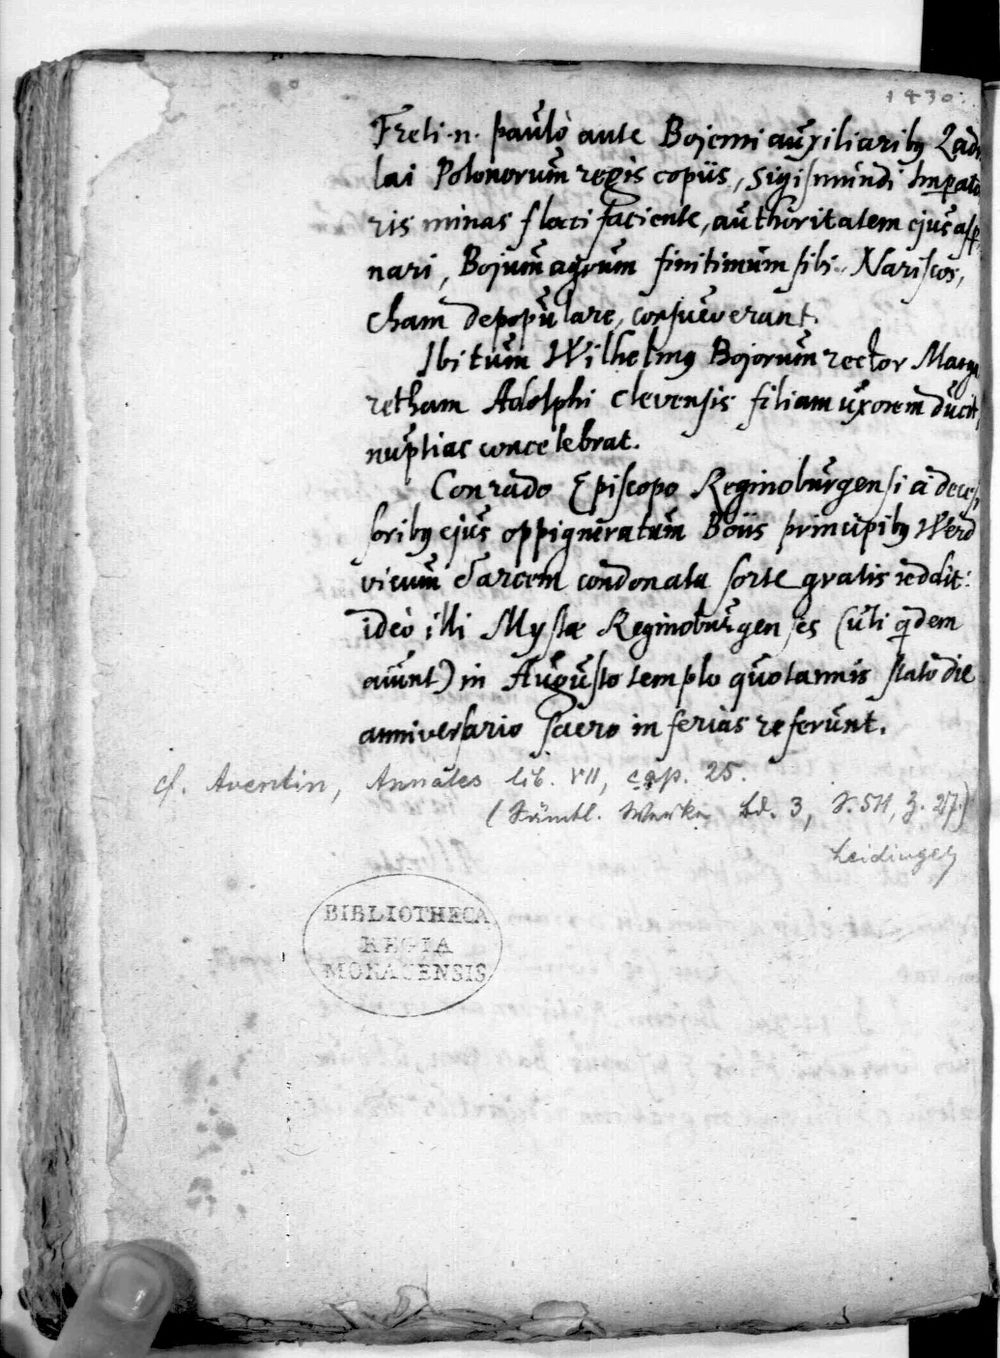 1430.
Freti .n. paulò ante Bojemi auxiliarib9 Ladis
lai Polonorum regis copiis, Sigismundi Imperato
ris minas flocci faciente, authoritatem ejus asper
nari, Bojum agrum finitimum sibi, Nariscos,
Cham depopulare, consueverant.
Ibi tum Wilhelmus Bojorum rector Marga
retham Adolphi Clevensis filiam uxorem ducit,
nuptias concelebrat.
Conrado Episcopo Reginoburgensi a deces
sorib9 ejus oppigneratum Boiis principib9 Werd
vicum & arcem condonata sorte gratis reddit:
ideò illi Mystæ Reginoburgenses (uti qdem
aiunt) in Augusto templo quotannis stato die
anniversario sacro inferias referunt.
cf. Aventin, Annales lib. VII, cap. 25.
(Sämtl. Werke Bd. 3, S. 511, Z. 27.)
Leidinger
BIBLIOTHECA
REGIA
MONACENSIS